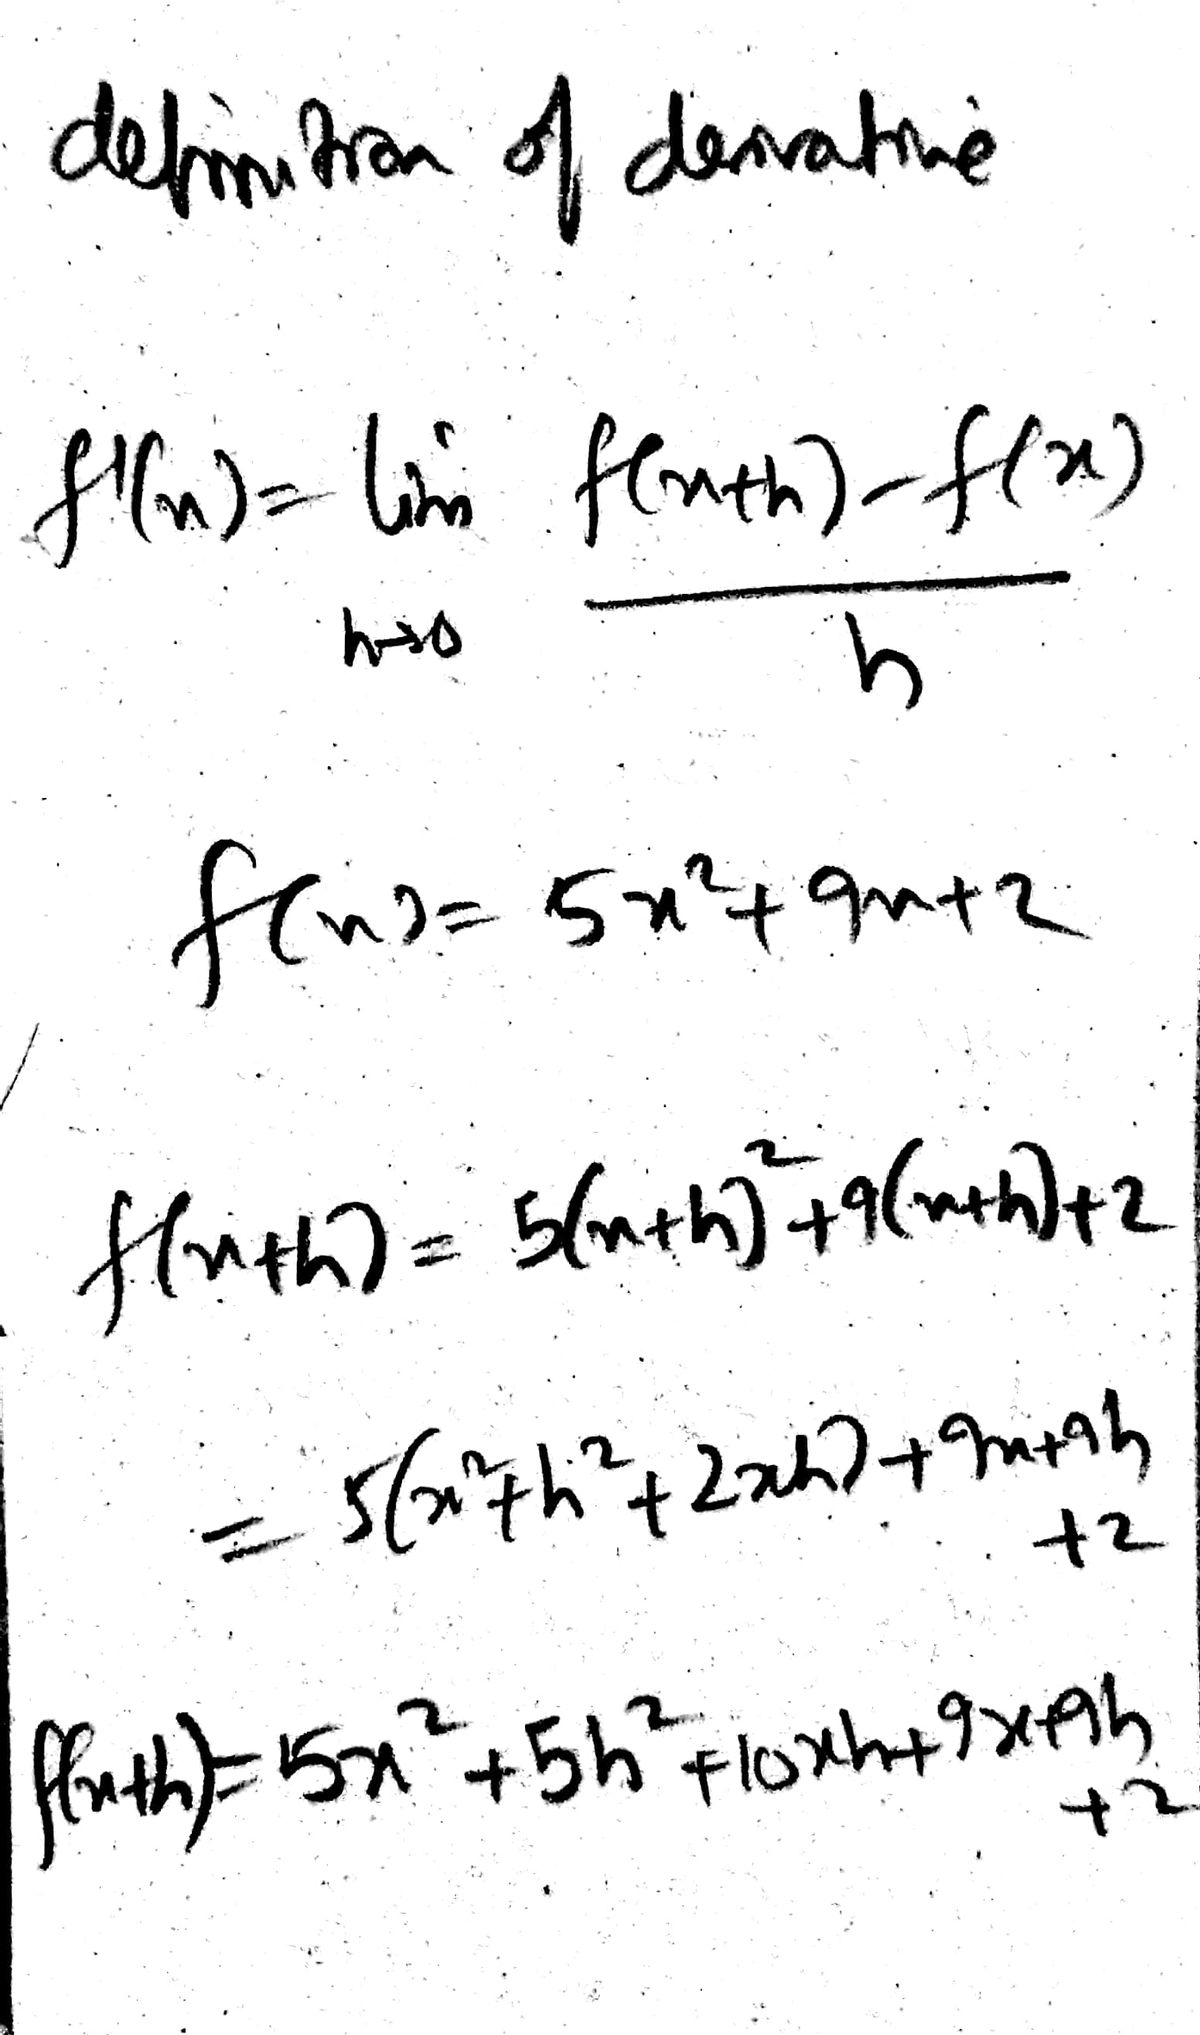 definition of derivative
f'(x) = lim f(x+h) - f(x)
h→0 h
f(x) = 5x² + 9x + 2
f(x+h) = 5(x+h)² + 9(x+h) + 2
= 5(x² + h² + 2xh) + 9x + 9h
+ 2
f(x+h) = 5x² + 5h² + 10xh + 9x + 9h
+ 2